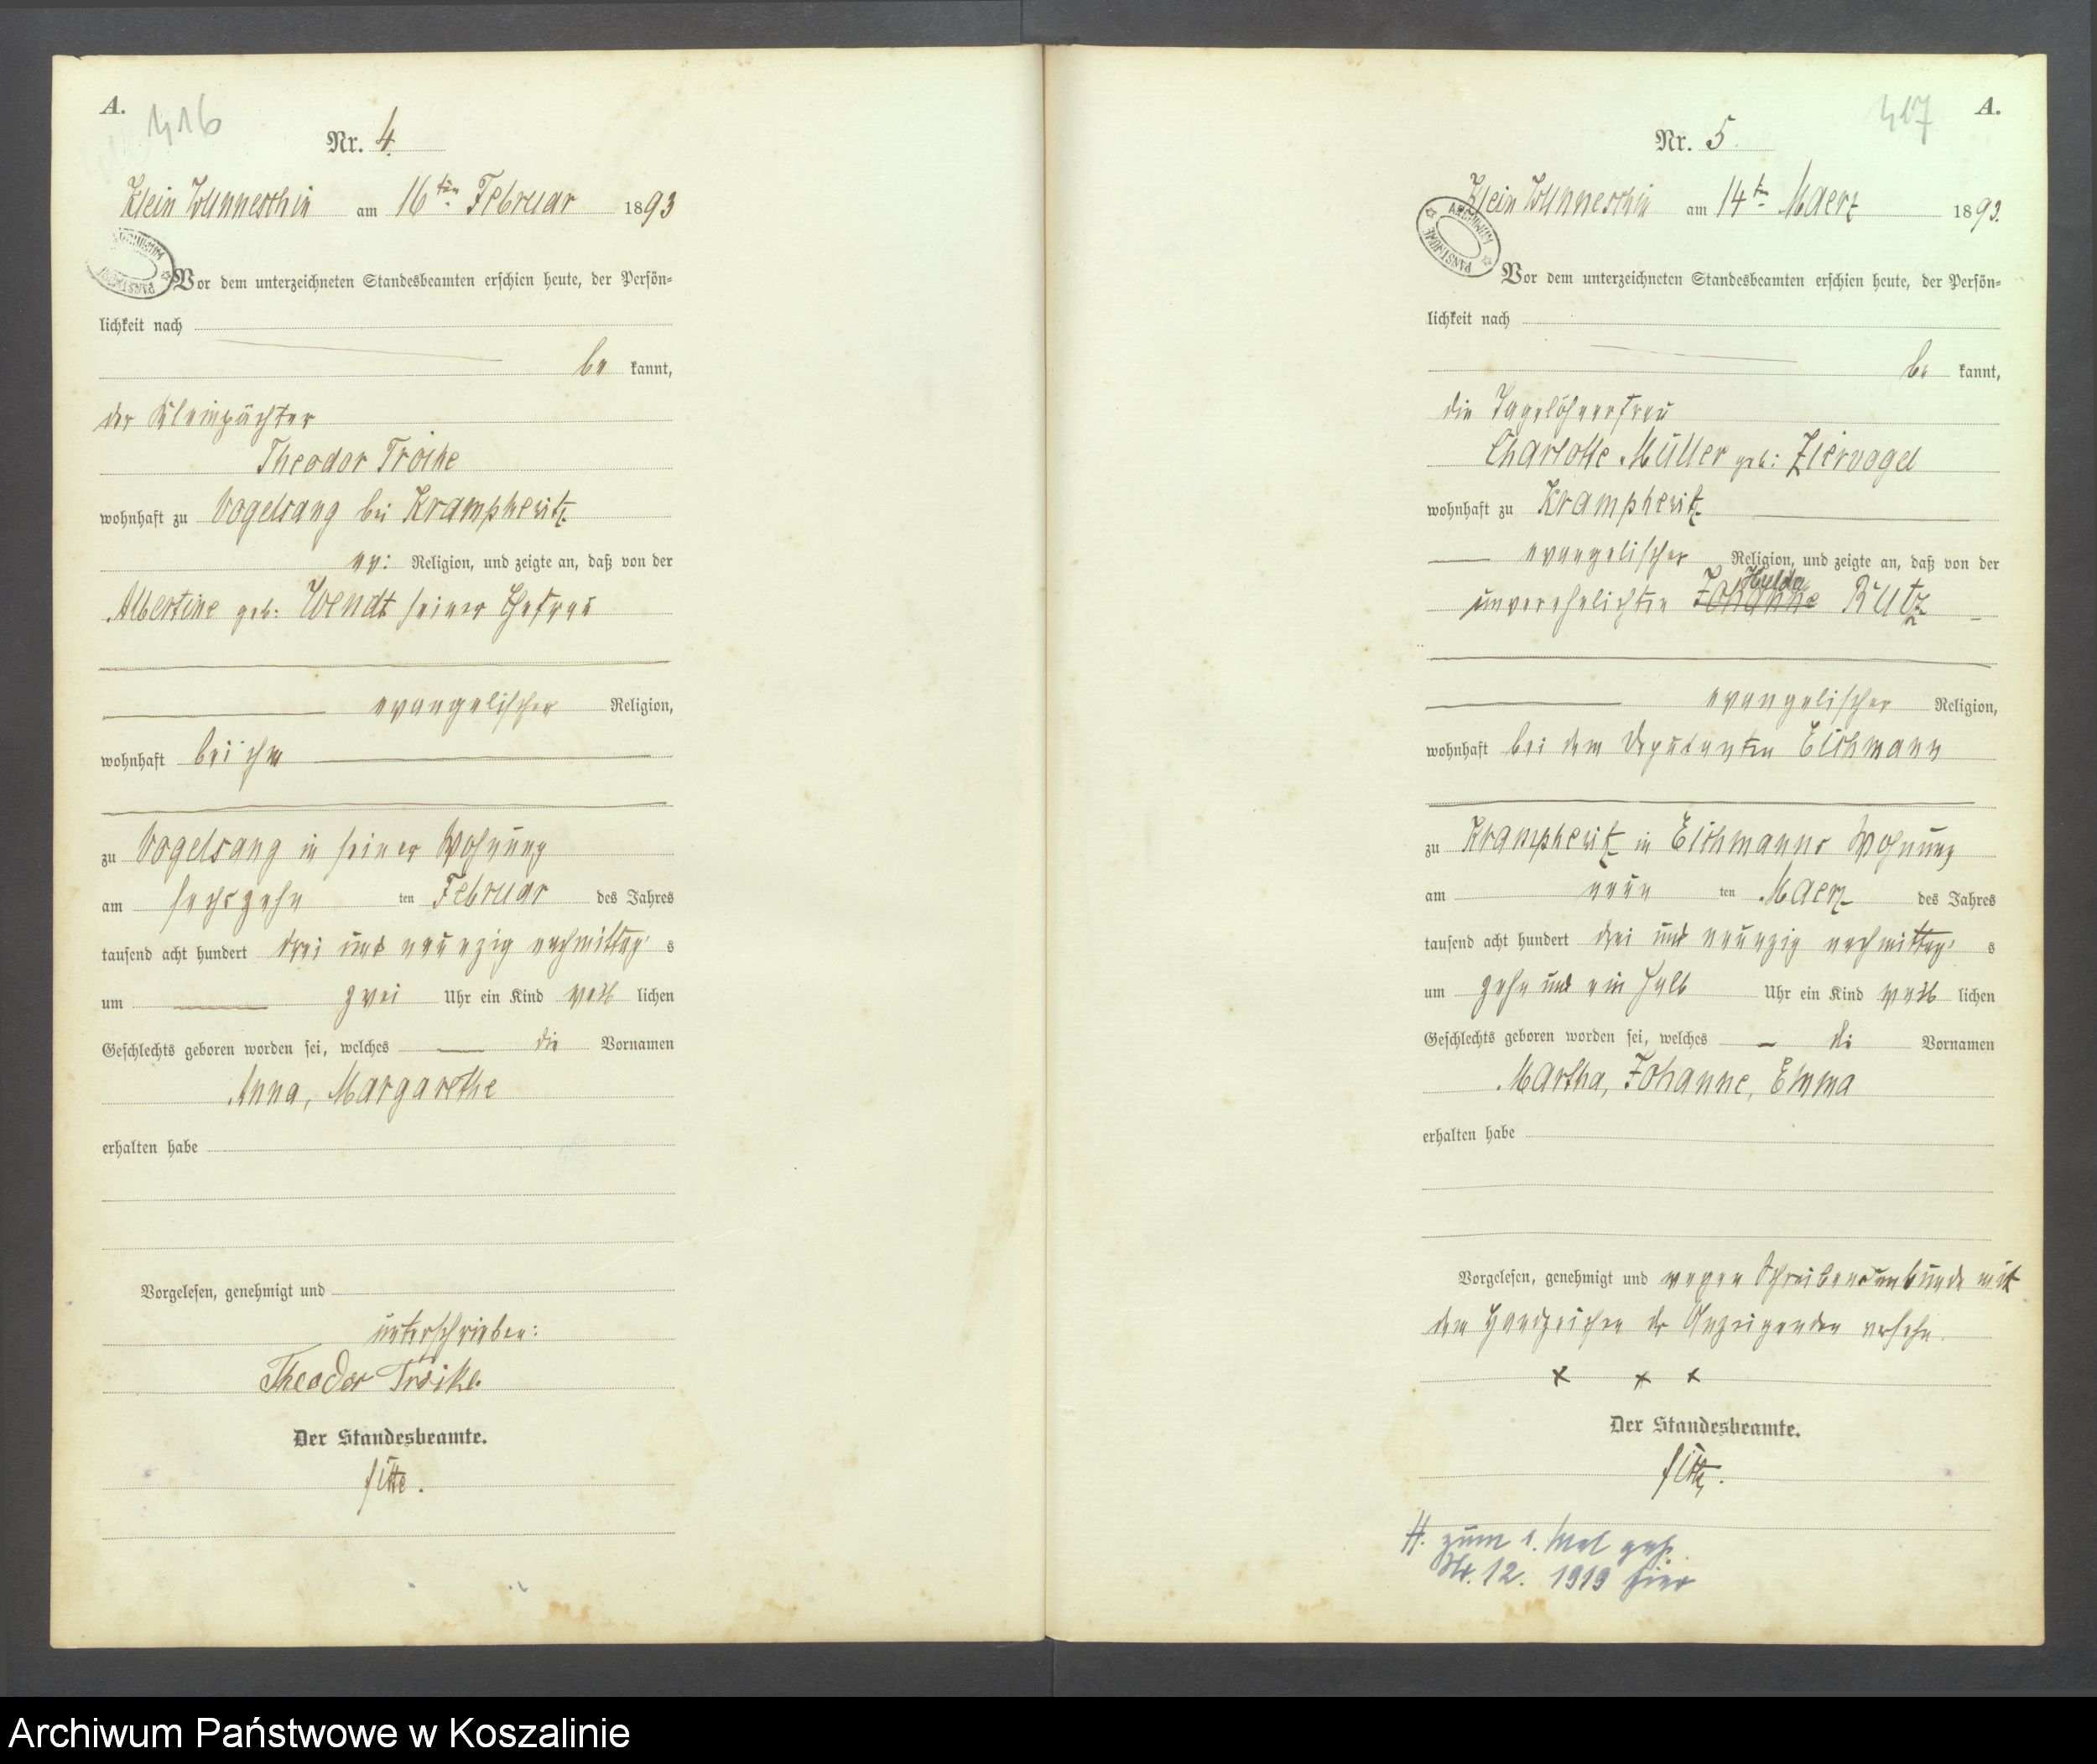 A.
416
Nr. 4.
Klein Wunneschin am 16ten Februar 1893
Vor dem unterzeichneten Standesbeamten erschien heute, der Persön-
lichkeit nach
be kannt,
der Kleinpächter
Theodor Troike
wohnhaft zu Vogelsang bei Krampkewitz
ev: Religion, und zeigte an, daß von der
Albertine geb: Wendt seiner Ehefrau
evangelischer Religion,
wohnhaft bei ihm
zu Vogelsang in seiner Wohnung
am sechszehn ten Februar des Jahres
tausend acht hundert drei und neunzig nachmittag s
um zwei Uhr ein Kind weib lichen
Geschlechts geboren worden sei, welches die Vornamen
Anna, Margarethe
erhalten habe
Vorgelesen, genehmigt und
unterschrieben:
Theodor Troike.
Der Standesbeamte.
417
A.
Nr. 5.
Klein Wunneschin am 14ten Maerz 1893.
ARCHIWUM PAŃSTWOWE
Vor dem unterzeichneten Standesbeamten erschien heute, der Persön-
lichkeit nach
be kannt,
die Tagelöhnerfrau
Charlotte Müller geb: Ziervogel
wohnhaft zu Krampkewitz
evangelischer Religion, und zeigte an, daß von der
Hulda
unverehelichten Johanne Rutz
evangelischer Religion,
wohnhaft bei dem Deputanten Eichmann
zu Krampkewitz in Eichmanns Wohnung
am neun ten Maerz des Jahres
tausend acht hundert drei und neunzig nachmittag s
um zehn und ein halb Uhr ein Kind weib lichen
Geschlechts geboren worden sei, welches die Vornamen
Martha, Johanne, Emma
erhalten habe
Vorgelesen, genehmigt und wegen Schreibensunkunde mit
dem Handzeichen der Anzeigenden versehn.
x x x
Der Standesbeamte.
H. zum 1. Mal geh.
Nr. 12. 1919 hier
Archiwum Państwowe w Koszalinie